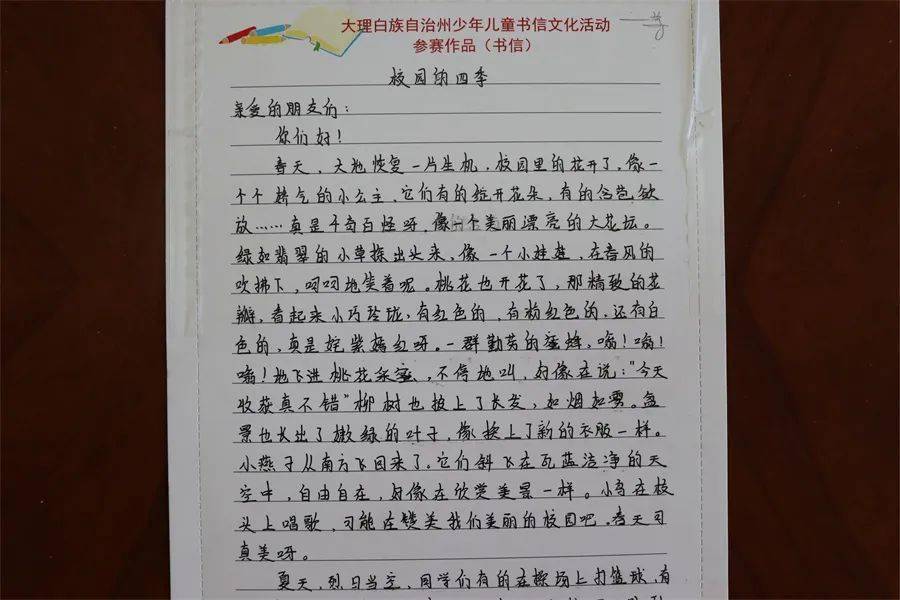 大理白族自治州少年儿童书信文化活动
参赛作品（书信）
校园的四季
亲爱的朋友们：
你们好！
春天，大地恢复一片生机，校园里的花开了，像一
个个娇气的小公主，它们有的绽开花朵，有的含苞欲
放……真是千奇百怪呀，像一个美丽漂亮的大花坛。
绿如翡翠的小草探出头来，像一个小娃娃，在春风的
吹拂下，呵呵地笑着呢。桃花也开花了，那精致的花
瓣，看起来小巧玲珑，有红色的，有粉红色的，还有白
色的，真是姹紫嫣红呀。一群勤劳的蜜蜂，嗡！嗡！
嗡！地飞进桃花采蜜，不停地叫，好像在说："今天
收获真不错"柳树也披上了长发，如烟如雾。盆
景也长出了嫩绿的叶子，像换上了新的衣服一样。
小燕子从南方飞回来了，它们斜飞在瓦蓝洁净的天
空中，自由自在，好像在欣赏美景一样。小鸟在枝
头上唱歌，可能在赞美我们美丽的校园吧。春天可
真美呀。
夏天，烈日当空，同学们有的在操场上打篮球，有